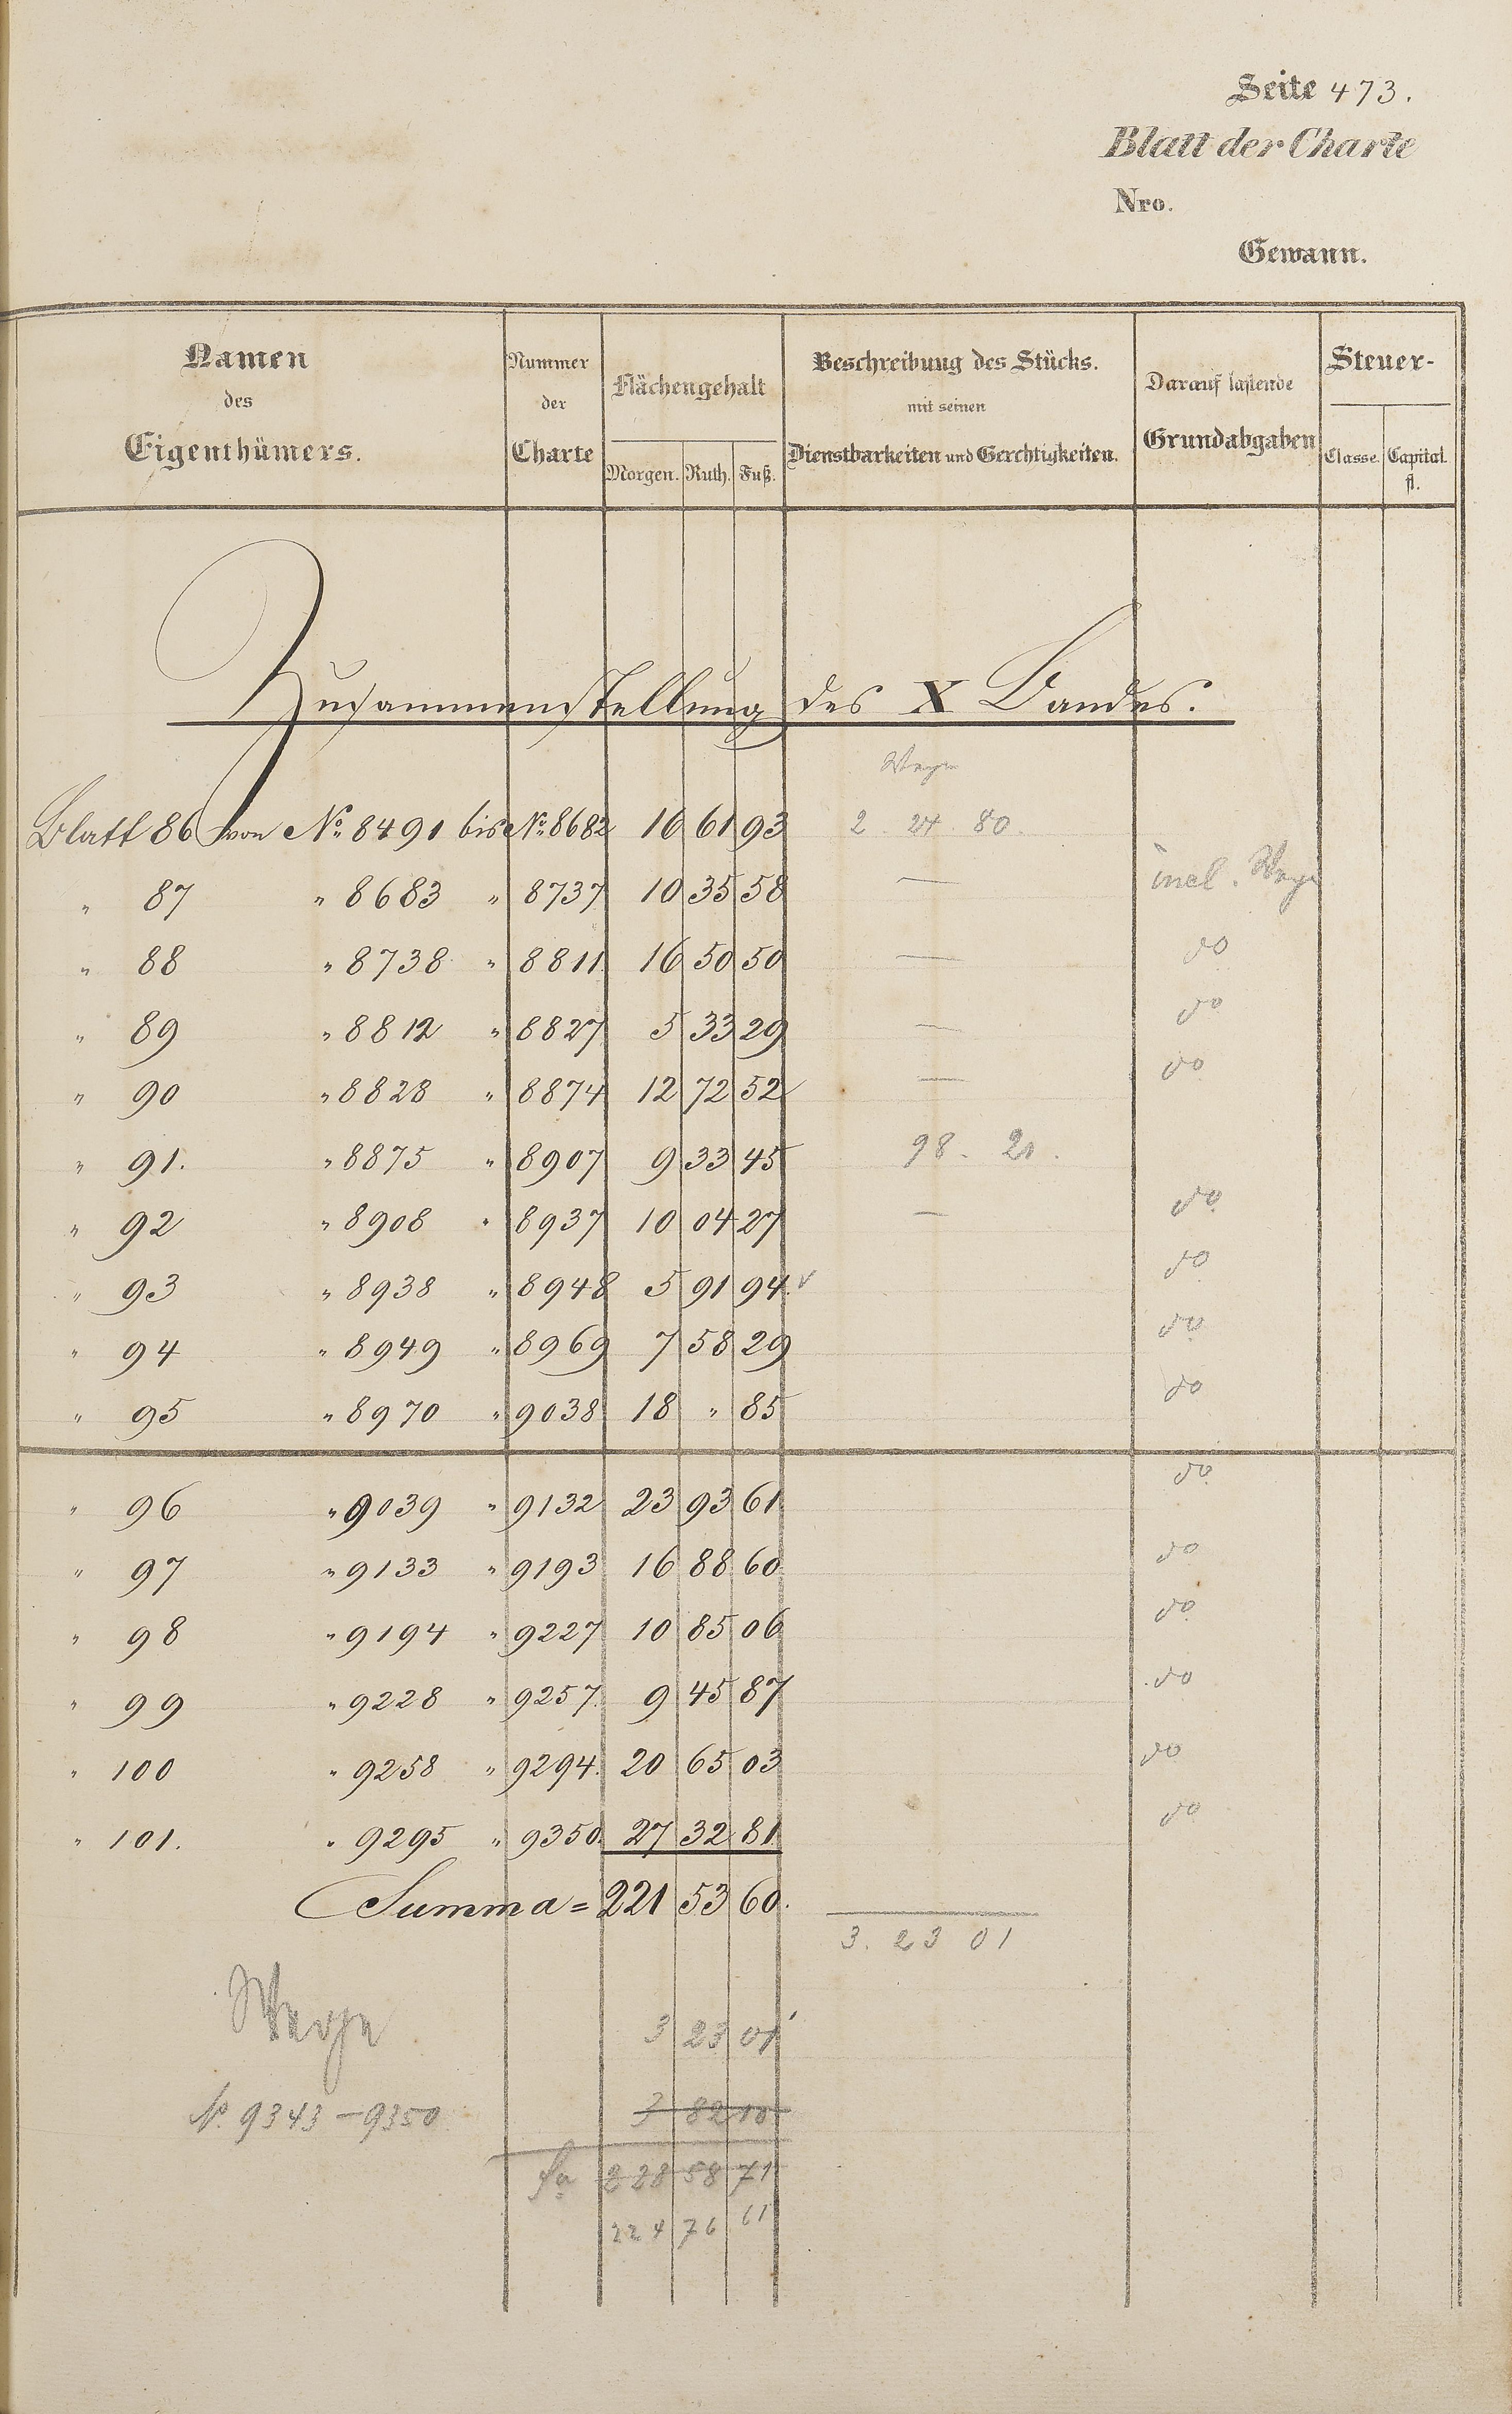 Seite 473.
Blatt der Charte
Nro.
Gewann.
Namen des Eigenthümers.
Nummer der Charte
Flächengehalt
Morgen. Ruth. Fuß.
Beschreibung des Stücks.
mit seinen
Dienstbarkeiten und Gerchtigkeiten.
Darauf lastende
Grundabgaben
Steuer-
Classe. Capital. fl.
Zusammenstellung des X Bandes.
Wege
Blatt 86 von No. 8491 bis No. 8682 16 61 93 2. 24. 80.
" 87 " 8683 " 8737 10 35 58 — incl. Wege
" 88 " 8738 " 8811 16 50 50 — do
" 89 " 8812 " 8827 5 33 29 — do
" 90 " 8828 " 8874 12 72 52 — do
" 91. " 8875 " 8907 9 33 45 98. 21.
" 92 " 8908 " 8937 10 04 27 — do
" 93 " 8938 " 8948 5 91 94. do
" 94 " 8949 " 8969 7 58 29 do
" 95 " 8970 " 9038 18 " 85 do
" 96 " 9039 " 9132 23 93 61 do
" 97 " 9133 " 9193 16 88 60 do
" 98 " 9194 " 9227 10 85 06 do
" 99 " 9228 " 9257. 9 45 87 do
" 100 " 9258 " 9294. 20 65 03 do
" 101. " 9295 " 9350. 27 32 81 do
Summa = 221 53 60.
3. 23 01
Wege 3 23 01
No. 9343-9350 3 82 10
Sa 228 58 71
224 76 61